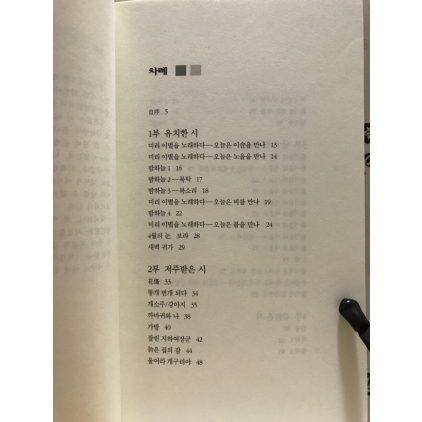 차례
自序 5
1부 유치한 시
미리 이별을 노래하다—오늘은 이슬을 만나 13
미리 이별을 노래하다—오늘은 노을을 만나 14
밤하늘 1 16
밤하늘 2—목탁 17
밤하늘 3—북소리 18
미리 이별을 노래하다—오늘은 비를 만나 19
밤하늘 4 22
미리 이별을 노래하다—오늘은 봄을 만나 24
4월의 눈 보라 28
새벽 귀가 29
2부 저주받은 시
33
번개 되다 34
개소주/강아지 35
까마귀와 나 38
가랑 40
잘린 지하여장군 42
집의 잠 44
울어라 개구리야 48